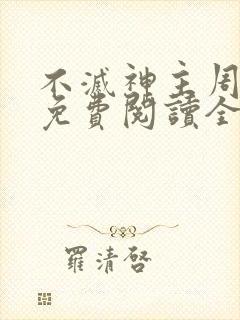 不滅神主周
免費閱讀全
羅清啓